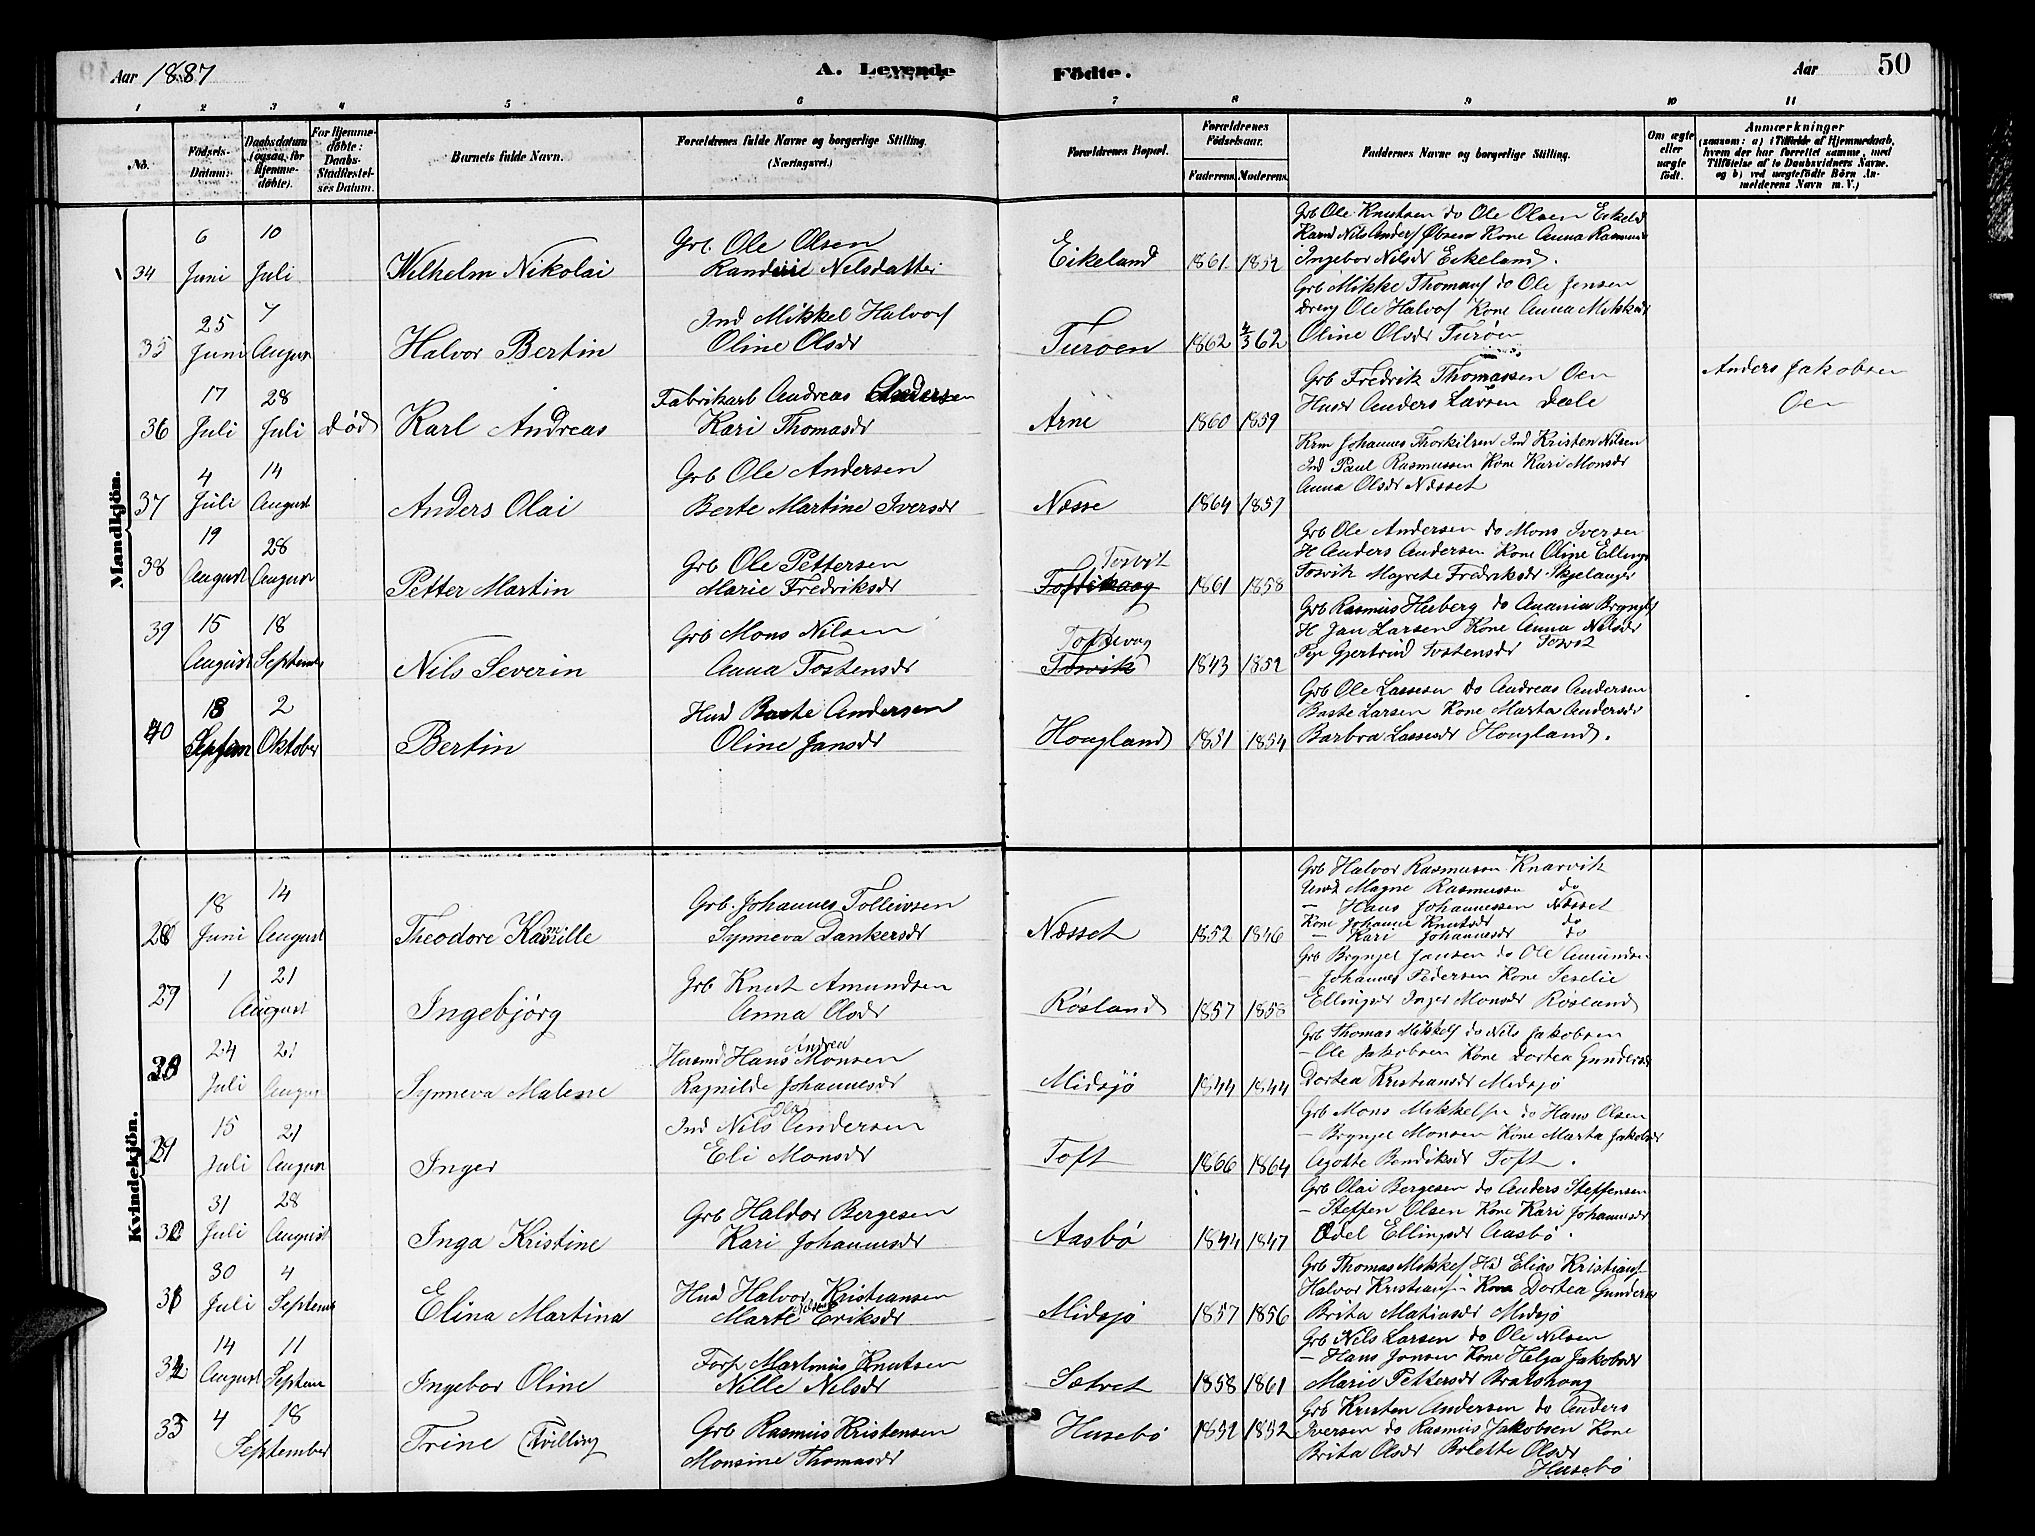 Aar 1887
A. Levende Födte.
Aar
50
1 2 3 4 5 6 7 8 9 10 11
No.
Födsels-Datum.
Daabsdatum (ogsaa for Hjemme-döbte).
For Hjemme-döbte: Daabs-Stadfæstel-ses Datum.
Barnets fulde Navn.
Forældrenes fulde Navne og borgerlige Stilling. (Næringsvei.)
Forældrenes Bopæl.
Forældrenes Födselsaar.
Faderens. Moderens.
Faddernes Navne og borgerlige Stilling.
Om ægte eller uægte født.
Anmærkninger
(saasom: a) i Tilfælde af Hjemmedaab, hvem der har forrettet samme, med Tilföielse af to Daabsvidners Navne. og b) ved uægtefödte Börn An-melderens Navn m. V.)
Mandkjön.
34 6 Juni 10 Juli Wilhelm Nikolai
Grb. Ole Olsen
Nelsdatter
Eikeland 1861 1852
Grb Ole Knutsen do Ole Olsen Eikelad
Kone Anna Rasmusd
Ingebor Nilsdr Eikeland.
35 25 Juni 7 August Halvor Bertin
Ind Mikkel Halvors
Oline Olsdr
Turöen 1862 62
Grb Mikke Thomas do Ole Jensen
Dreng Ole Halvors Kone Anna Mikkelsdr
Oline Olsdr Turöen
36 17 Juli 28 Juli død Karl Andreas
Fabrikarb Andreas Andersen
Kari Thomasdr
Arne 1860 1859
Grb Fredrik Thomassen Oen
Husdr Anders Larsen Dale
Anders Jakobsen
Oen
37 4 Juli 14 August Anders Olai
Grb Ole Andersen
Berte Martine Iversdr
Nesse 1864 1857
Krm Johannes Thorkilsen Ind Kristen Nilsen
Ind Paul Rasmussen Kone Kari Monsdr
Anna Olsdr Næsset
38 19 August 28 August Petter Martin
Grb Ole Pettersen
Marie Fredriksdr
Tosvik
1861 1858
Grb Ole Andersen do Mons Iversen
H Anders Andersen Kone Oline Ellings
Tosvik Magrete Fredriksdr Skjelanger
39 15 August 18 September Nils Severin
Grb Mons Nilsen
Anna Tostensdr
Toftevag
Tosvik 1843 1852
Grb Rasmus Herberg do Anania Bryngels
H Jan Larsen Kone Anna Nilsdr
Pige Gjertrud Tostensdr Tosvik
40 18 Septem 2 Oktober Bertin
Husd Baste Andersen
Oline Jansdr
Hougland 1851 1854
Grb Ole Lassesen do Andreas Andersen
Baste Larsen Kone Marta Andersdr
Barbra Lassesdr Hougland.
Kvindekjön.
28 18 Juni 14 August Theodore Kamille
Grb. Johannes Tolleivsen
Synneva Dankersdr
Næsset 1852 1846
Grb Halvor Rasmussen Knarvik
Magne Rasmussen do
- Hans Johannessen Næsset
Kone Johanne Knutsdr do
- Kari Johannesdr do
27 1 21 August Ingebjörg
Grb Knut Amundsen
Anna Olsdr
Røsland 1857 1858
Grb Brynjel Jansen do Ole Amundse
- Johannes Pedersen Kone Seselie
Ellingsdr Inger Monsdr Røsland
24 Juli 21 August Synneva Malene
Husmd Hans Andrea Monsen
Ragnilde Johannesdr
Midsjö 1844 1844
Grb Thomas Mikkels do Nils Jakobsen
- Ole Jakobsen Kone Dortea Gundersdr
Dortea Kristiansdr Midsjö
15 Juli 21 August Inger
Ind Nils Olai Andersen
Eli Monsdr
Toft 1866 1864
Grb Mons Mikkelsen do Hans Olsen
- Brynjel Monsen Kone Marta Jakobsdr
Agotte Bendiksdr Toft.
31 Juli 28 August Inga Kristine
Grb Haldor Bergesen
Kari Johannesdr
Aasbö 1844 1847
Grb Olai Bergesen do Anders Steffensen
- Steffen Olsen Kone Kari Johannesdr
Odel Ellingsdr Aasbö.
30 Juli 4 Septemb Elina Martina
Husd Halvor Kristiansen
Marte Eriksdr
Midsjö 1857 1856
Grb Thomas Mikkels Hd Elias Kristians
Halvor Kristians Kone Dortea Gunders
Brita Matiasdr Midsjö
14 August 11 Septem Ingebor Oline
Forp Martinus Knutsen
Nille Nilsdr
Sætret 1858 1861
Grb Nils Larsen do Ole Nilsen
- Hans Jonsen Kone Helga Jakobsdr
Marie Pettersdr Bratshoug
33 4 18 September Trine (Tvilling)
Grb Rasmus Kristensen
Monsine Thomasdr
Husebö 1852 1852
Grb Kristen Andersen do Anders
Iversen do Rasmus Jakobsen Kone
Brita Olsdr Bolette Olsdr
Husebö